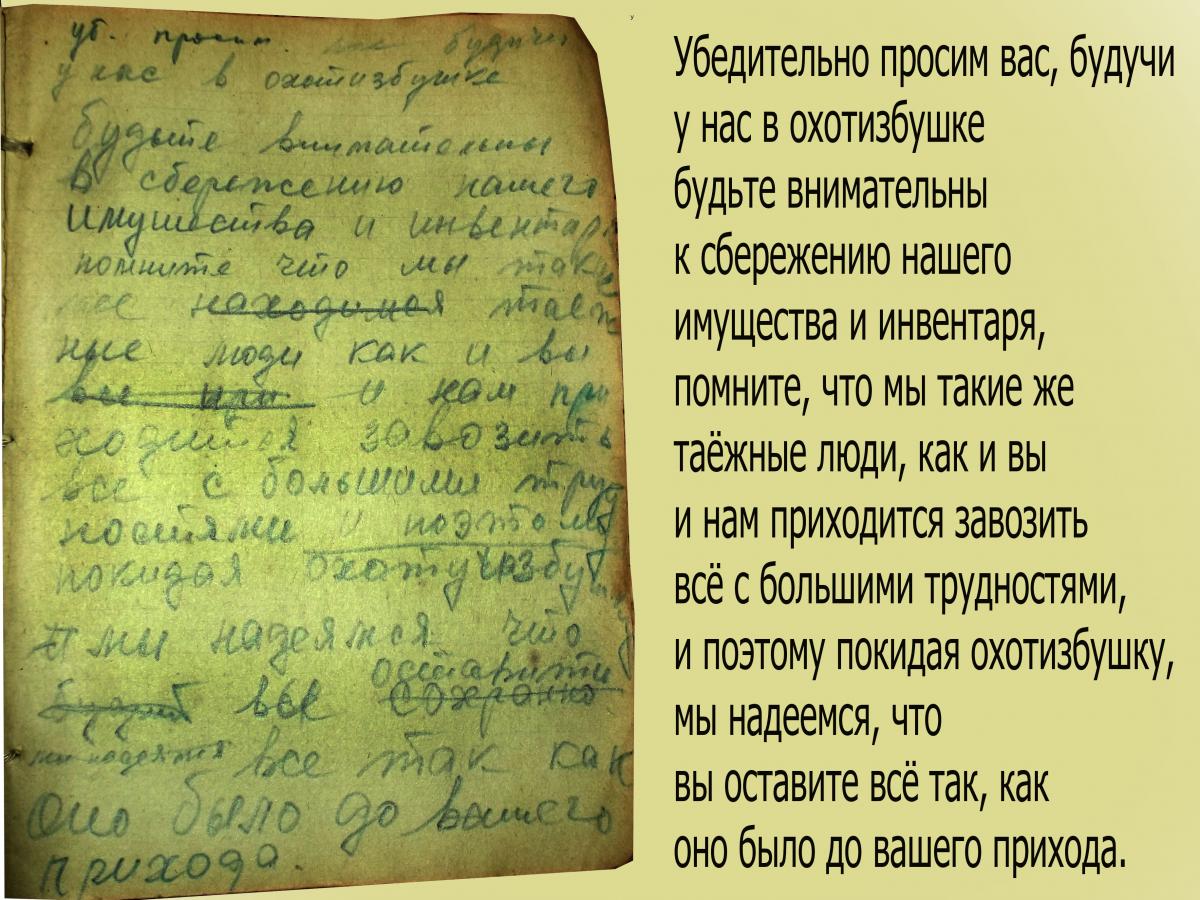 уб. просим будучи
у нас в охотизбушке
будьте внимательны
в сбережению нашего
имущества и инвентаря
помните что мы такие
же находимся таеж
ные люди как и вы
все и нам при
ходится завозить
все с большими труд
ностями и поэтому
покидая охотуизбу
мы надеямся что
оставите
будет все сохранно
мы надеямся все так как
оно было до вашего
прихода.
Убедительно просим вас, будучи
у нас в охотизбушке
будьте внимательны
к сбережению нашего
имущества и инвентаря,
помните, что мы такие же
таёжные люди, как и вы
и нам приходится завозить
всё с большими трудностями,
и поэтому покидая охотизбушку,
мы надеемся, что
вы оставите всё так, как
оно было до вашего прихода.